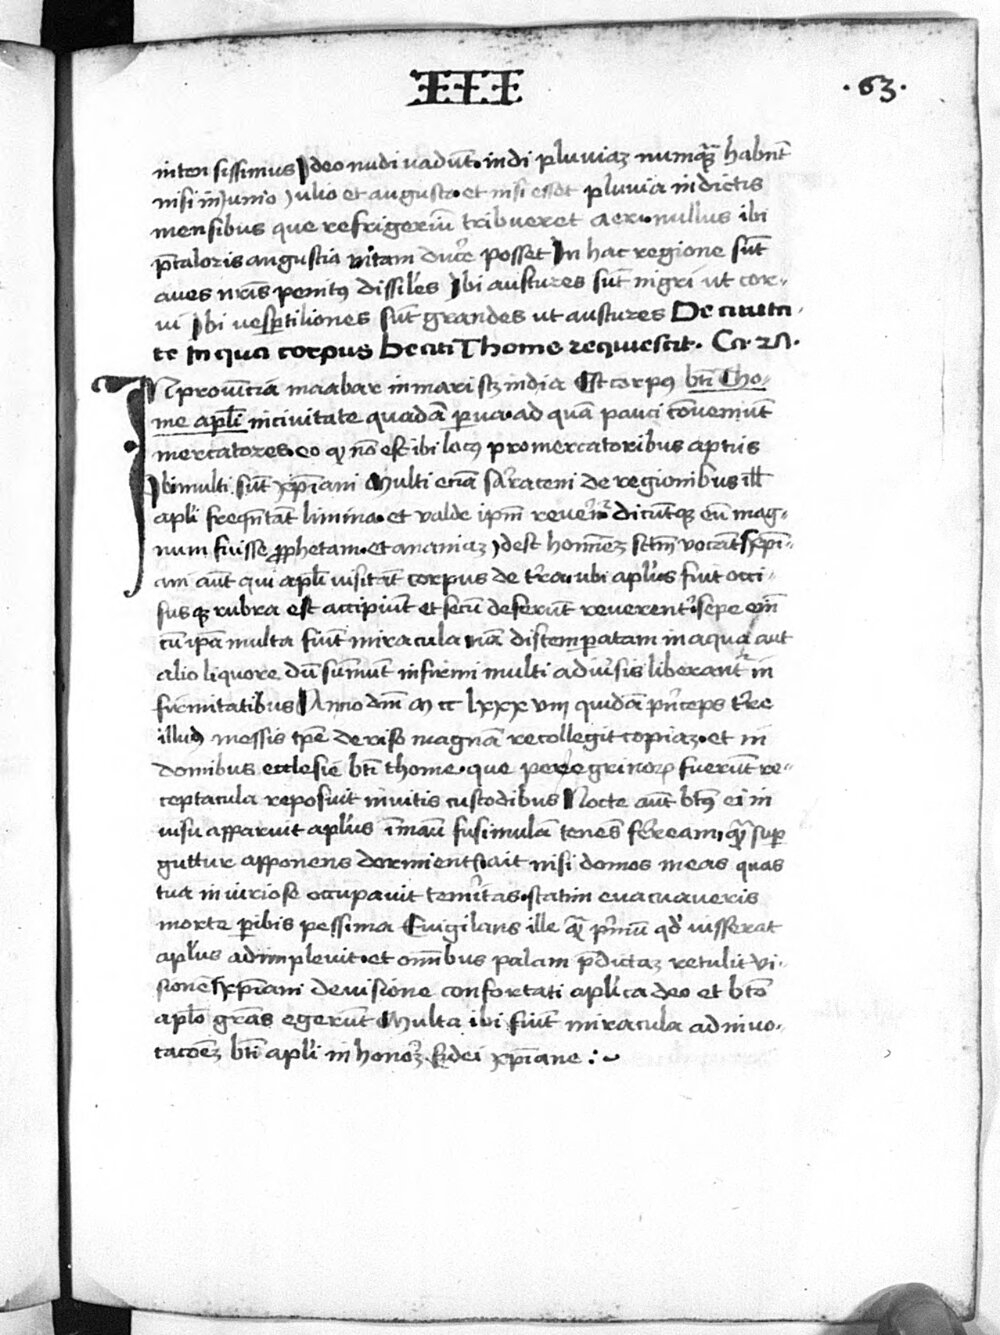 III
·63·
inten sissimus Ideo nudi vadūt. indi pluviaz numq̄ȝ habnt
nisi in Iunio Iulio et augusto. et nisi esset pluvia in dictis
mensibus que refrigeriū tribueret aeri. nullus ibi
p̄ caloris angustia vitam ducē posset In hac regione sūt
aves nr̄is penitꝰ dissiles Ibi austures sūt nigri ut cor-
vi Ibi vesp̄tiliones sūt grandes ut austures De civita-
te in qua corpus beati Thome requiescit. Ca. 27.
IN provincia maabar in mari scȝ india Est corpꝰ bt̄i Tho-
me apl̄i in civitate quadā parva. ad quā pauci cōveniūt
mercatores. eo qꝫ nō est ibi locꝰ pro mercatoribus aptus
Ibi multi sūt xp̄iani Multi etiā sarraceni de regionibus ill̄
apl̄i freqn̄tāt limina. et valde ip̄m reverēt. dicūtqꝫ eū mag-
num fuisse ꝓphetam. et anamiaz idest hominez sctm̄ vocāt xp̄i-
ani aūt qui apl̄i visitāt corpus de tr̄a ubi apl̄us fuit occi-
sus qꝫ rubra est accipiūt et secū deferūt reverent̄. sepe em̄
cū ip̄a multa fiūt miracula nā distemperatam in aqua aut
alio liquore dū sumūt infirmi multi a div̄sis liberant̄ in
firmitatibus Anno dn̄i M cc lxxx viij quidā p̄nceps tr̄e
illiꝰ messis tp̄e de riso magnā recollegit copiaz. et in
domibus ecclesie bt̄i thome. que peregrinoꝝ fuerūt re-
ceptacula reposuit invitis custodibus Nocte aūt bt̄ꝰ ei in
visu apparuit apl̄us ī manu fusimulā tenēs ferream, quā sup̄
guttur apponens dormient. ait nisi domos meas quas
tua iniuriose occupavit temēitas. statim evacuaveris
morte peribis pessima Evigilans ille qā p̄mū qd̄ iusserat
apl̄us adimplevit. et omībus palam p̄dictaz retulit vi-
sionē xp̄iani de visione confortati apl̄ica deo et bt̄o
apl̄o gr̄as egerūt Multa ibi fiūt miracula ad invo-
tacōeȝ bt̄i apl̄i in honoȝ fidei xp̄iane :~